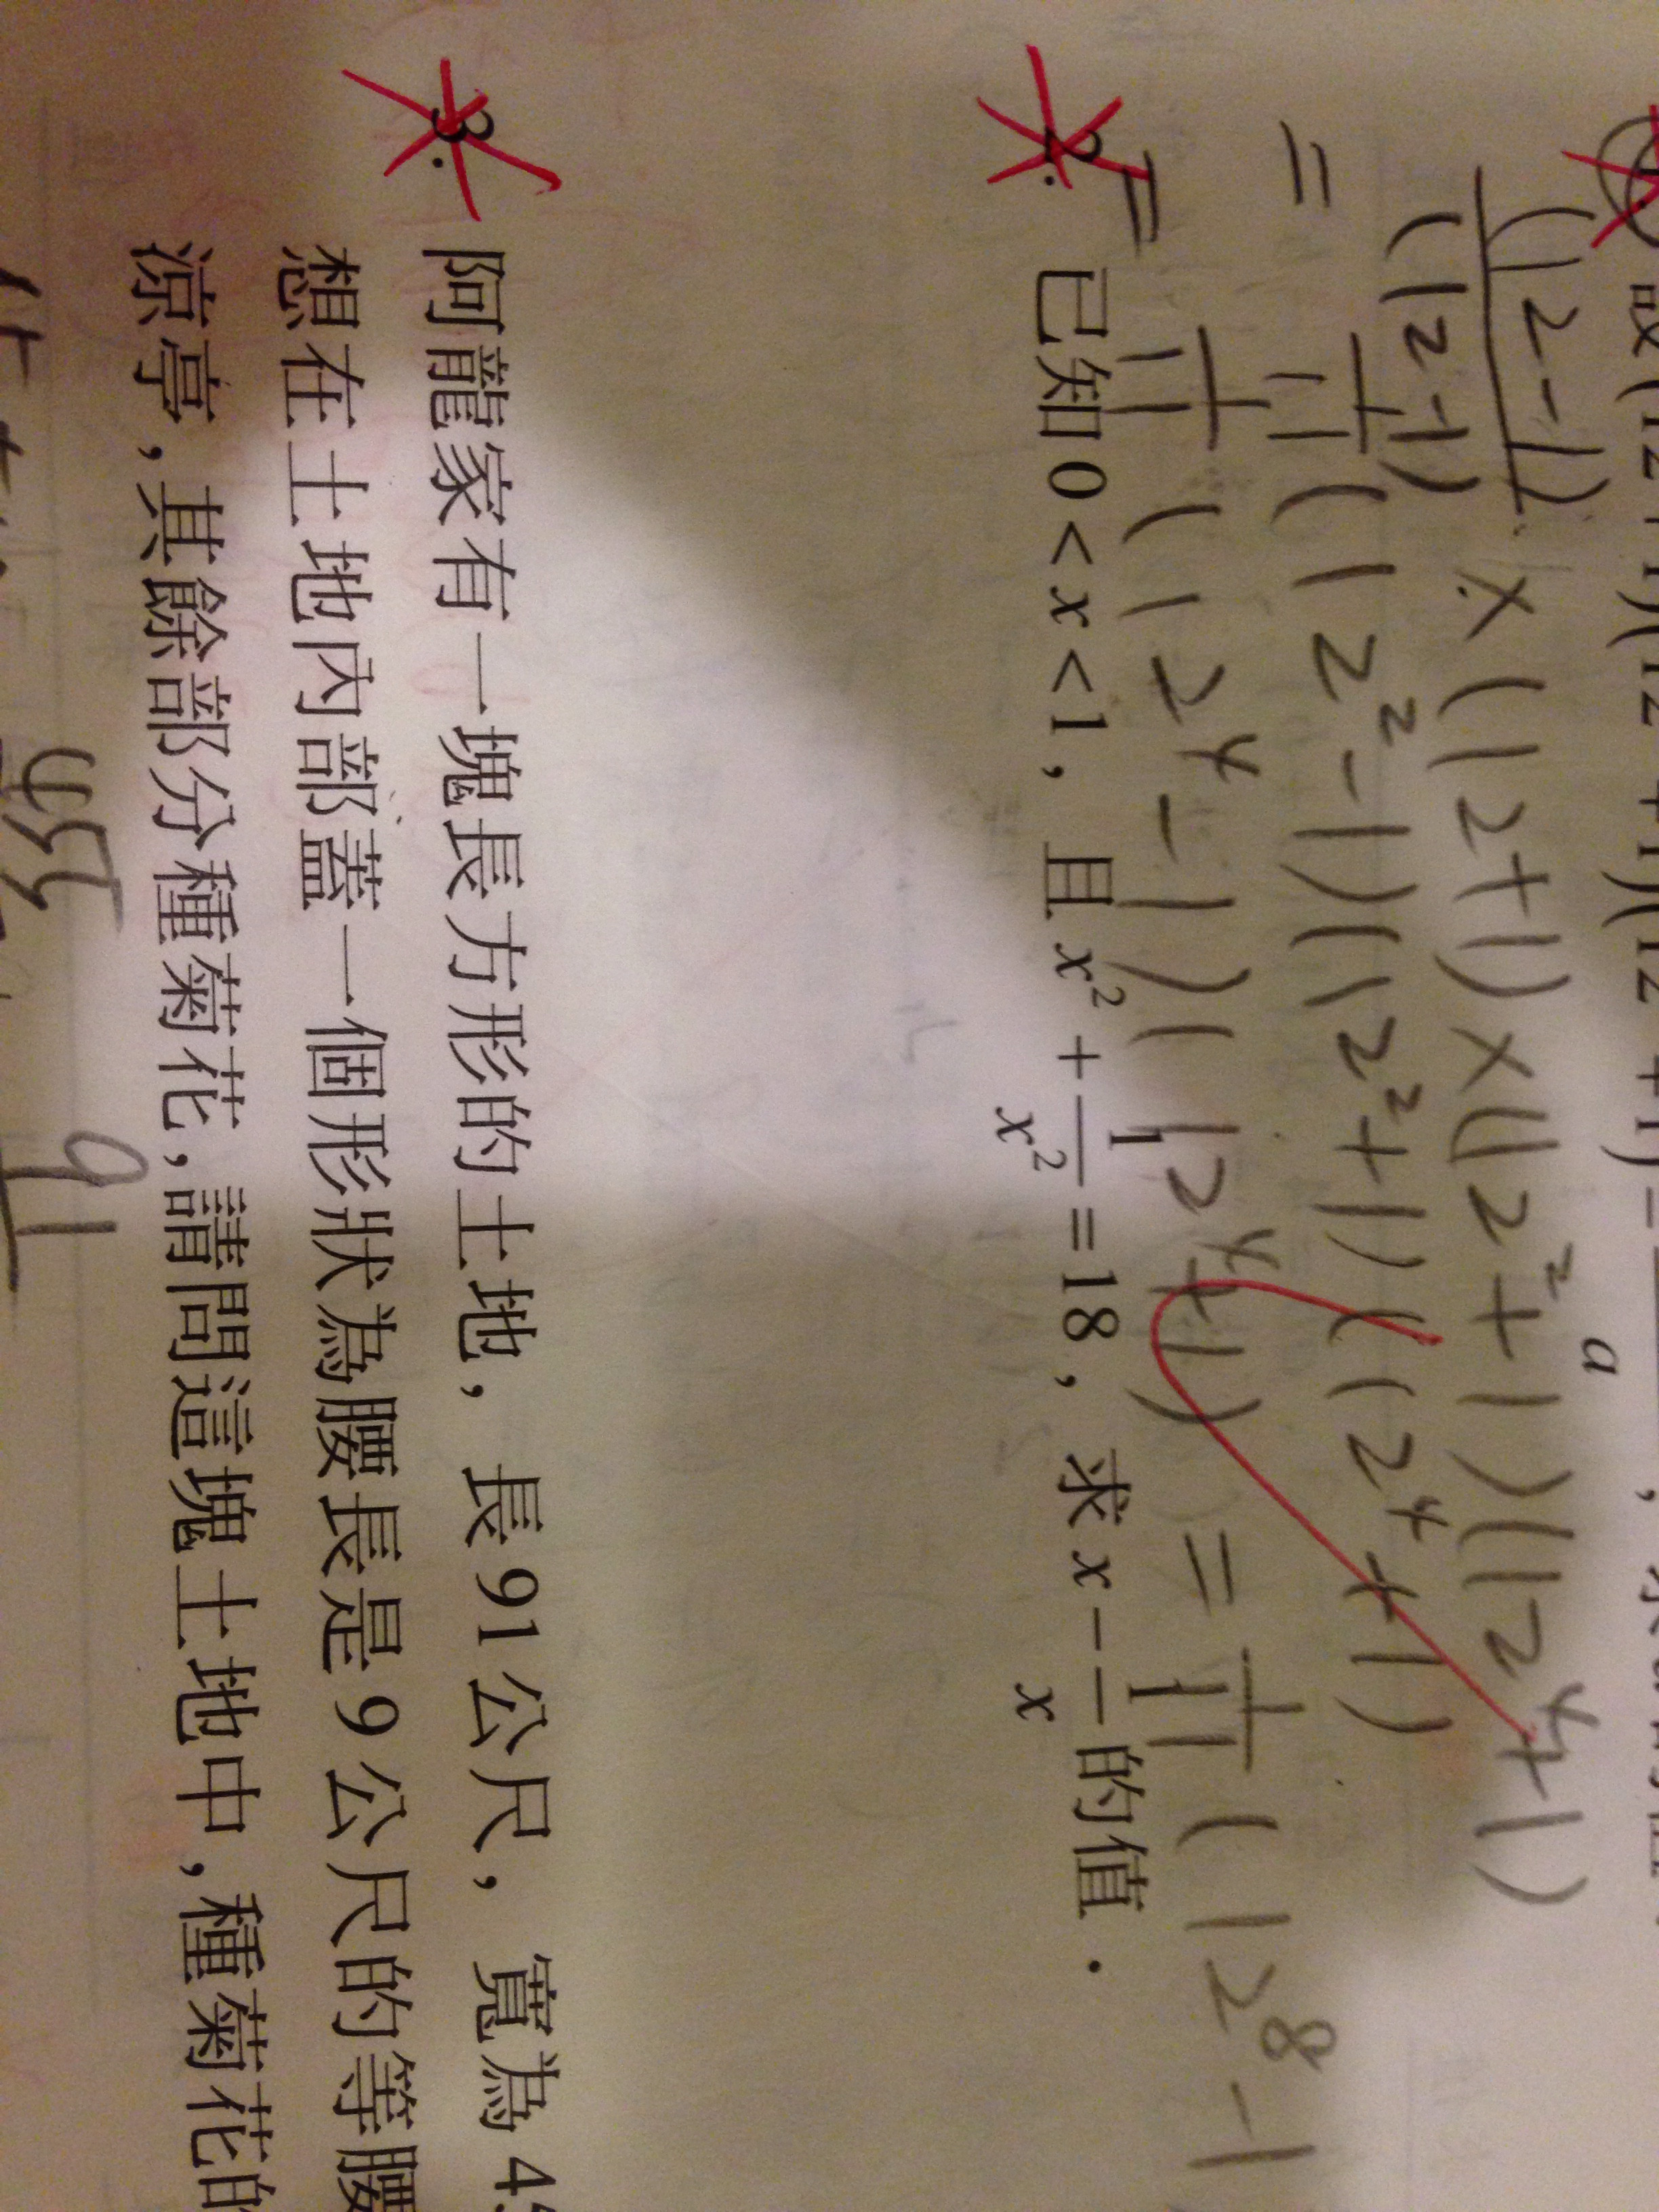 設(12+1)(12²+1)(12⁴+1)=
a
(12-1)/(12-1) ×(12+1)×(12²+1)(12⁴+1)
= 1/11 (12²-1)(12²+1)(12⁴+1)
= 1/11 (12⁴-1)(12⁴+1) = 1/11 (12⁸-1
2. 已知0<x<1,且x²+1/x²=18,求x-1/x的值.
3. 阿龍家有一塊長方形的土地,長91公尺,寬為4
想在土地內部蓋一個形狀為腰長是9公尺的等腰
涼亭,其餘部分種菊花,請問這塊土地中,種菊花的